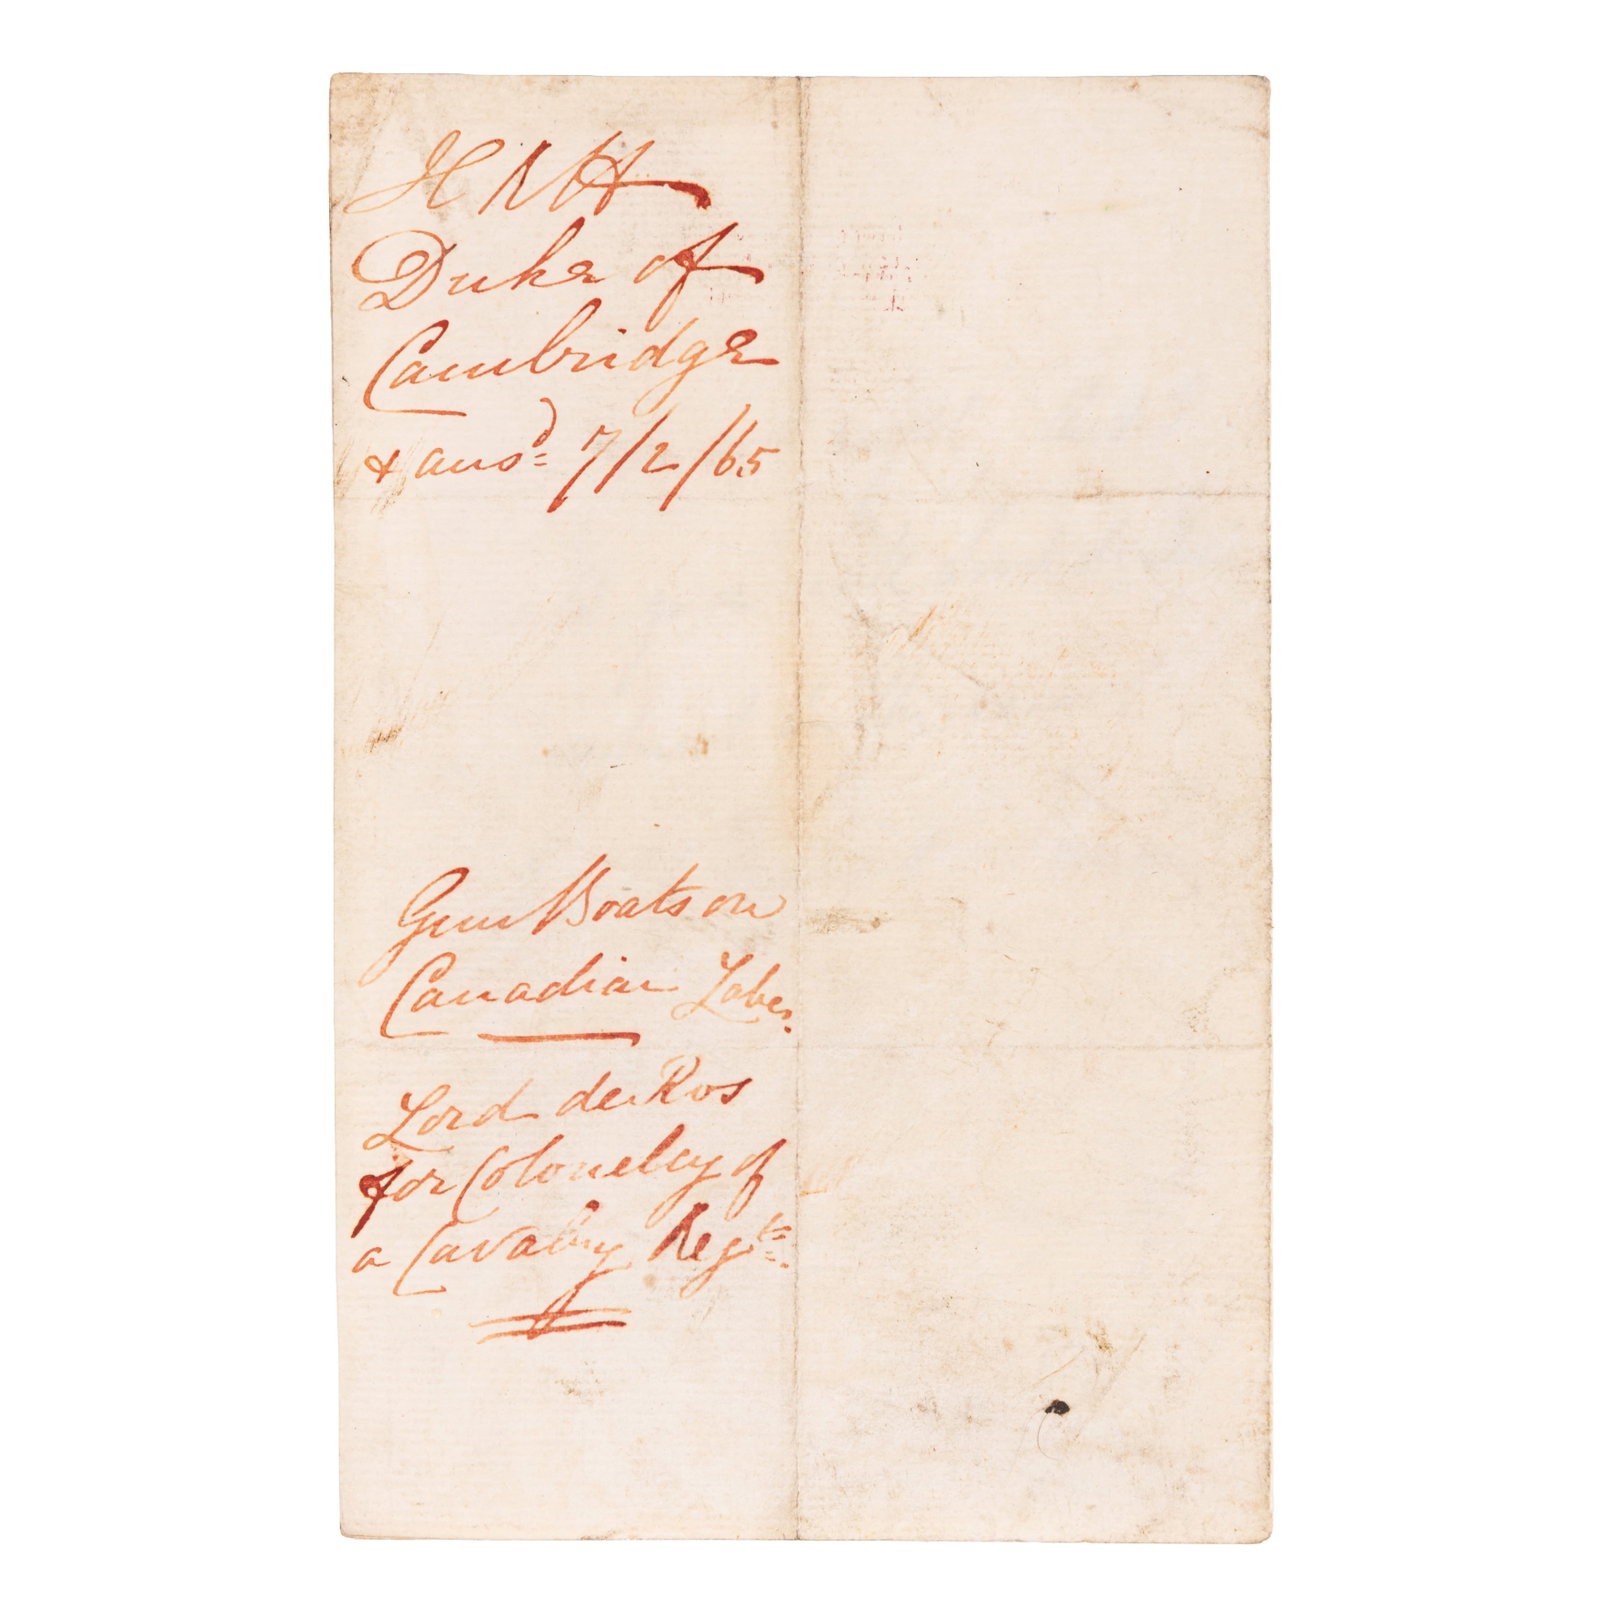 HRH
Duke of
Cambridge
& ansd 7/2/65
Gun Boats on
Canadian Lakes.
Lord de Ros
for Colonelcy of
a Cavalry Regt.